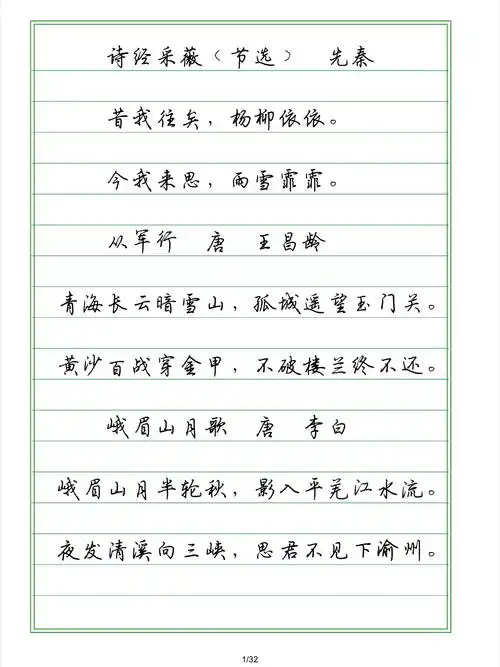 诗经采薇（节选） 先秦
昔我往矣，杨柳依依。
今我来思，雨雪霏霏。
从军行 唐 王昌龄
青海长云暗雪山，孤城遥望玉门关。
黄沙百战穿金甲，不破楼兰终不还。
峨眉山月歌 唐 李白
峨眉山月半轮秋，影入平羌江水流。
夜发清溪向三峡，思君不见下渝州。
1/32